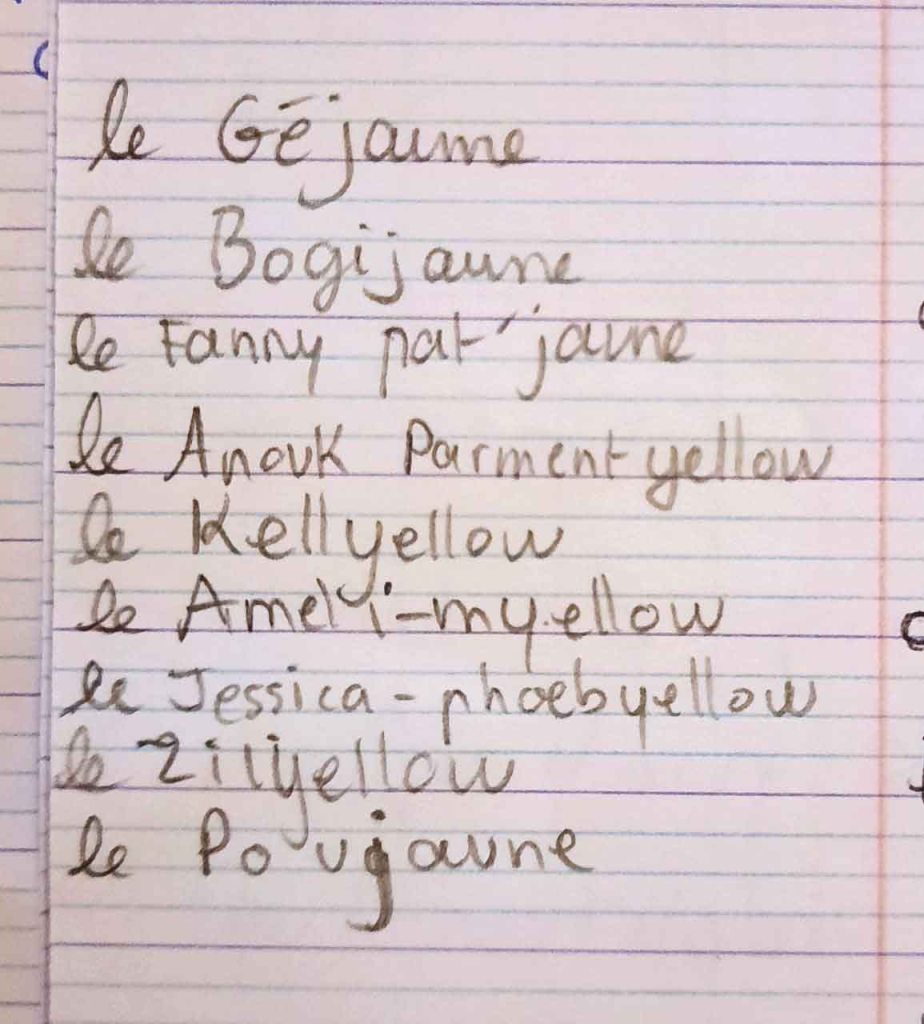 le Géjaune
le Bogijaune
le Fanny pat'jaune
le Anouk Parmentyellow
le Kellyellow
le Amely-myellow
le Jessica-phoebyellow
le Zillyellow
le Poujaune